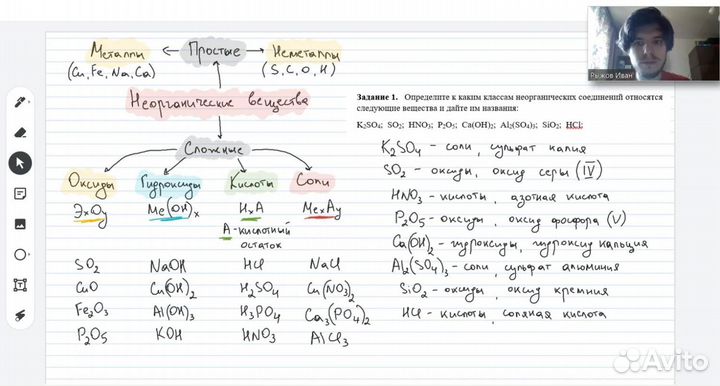 Металлы ← Простые → Неметаллы
(Cu, Fe, Na, Ca) (S, C, O, H)
Неорганические вещества
Сложные
Оксиды Гидроксиды Кислоты Соли
ЭxOy Me(OH)x HxA MexAy
A - кислотный
остаток
SO2 NaOH HCl NaCl
CuO Cu(OH)2 H2SO4 Cu(NO3)2
Fe2O3 Al(OH)3 H3PO4 Ca3(PO4)2
P2O5 KOH HNO3 AlCl3
Рыжков Иван
Задание 1. Определите к каким классам неорганических соединений относятся
следующие вещества и дайте им названия:
K2SO4; SO2; HNO3; P2O5; Ca(OH)2; Al2(SO4)3; SiO2; HCl;
K2SO4 - соли, сульфат калия
SO2 - оксиды, оксид серы (IV)
HNO3 - кислоты, азотная кислота
P2O5 - оксиды, оксид фосфора (V)
Ca(OH)2 - гидроксиды, гидроксид кальция
Al2(SO4)3 - соли, сульфат алюминия
SiO2 - оксиды, оксид кремния
HCl - кислоты, соляная кислота
Avito